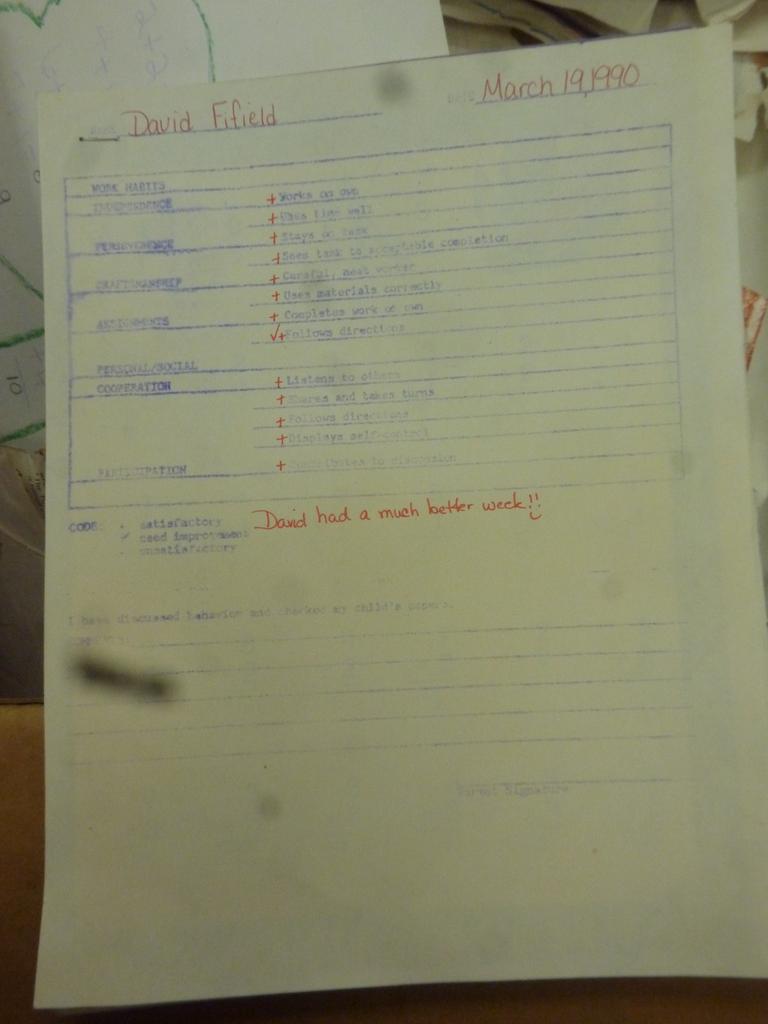 NAME David Fifield DATE March 19, 1990
WORK HABITS
INDEPENDENCE + Works on own
+ Uses time well
PERSEVERENCE + Stays on task
+ Sees task to acceptable completion
CRAFTSMANSHIP + Careful, neat worker
+ Uses materials correctly
ASSIGNMENTS + Completes work on own
✓+ Follows directions
PERSONAL/SOCIAL
COOPERATION + Listens to others
+ Shares and takes turns
+ Follows directions
+ Displays self-control
PARTICIPATION + Contributes to discussion
CODE: + satisfactory David had a much better week!!
✓ need improvement
- unsatisfactory
I have discussed behavior and checked my child's papers.
COMMENTS:
Parent Signature